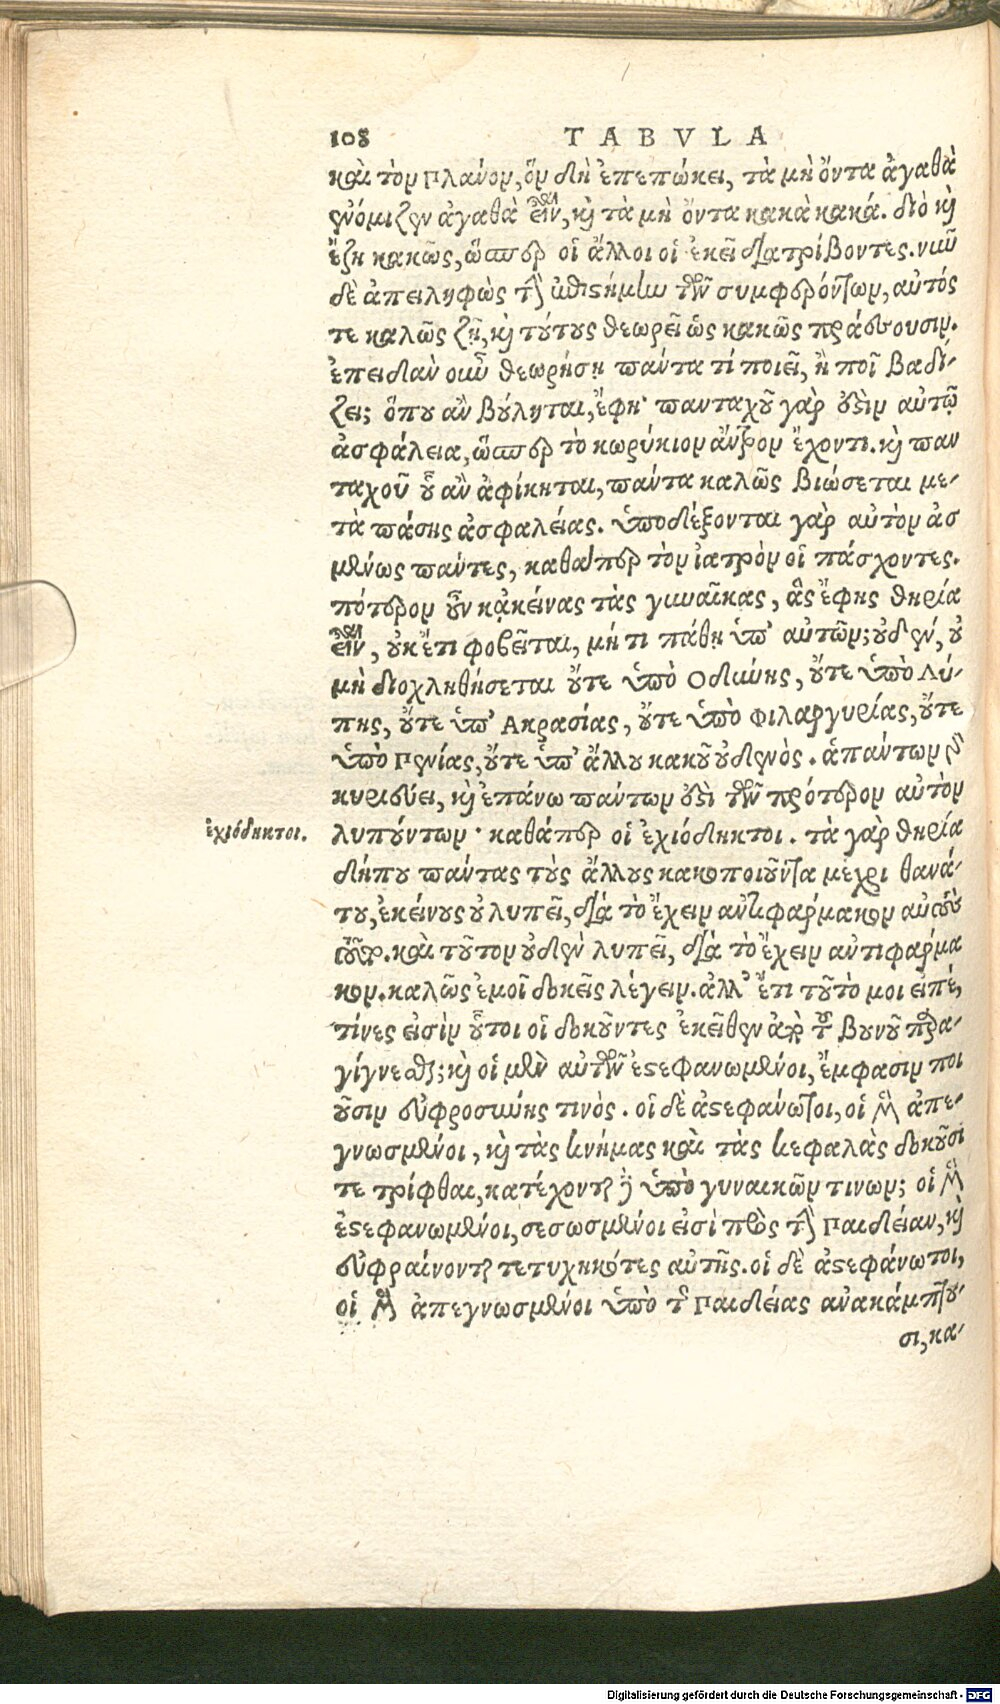 108 TABVLA
καὶ τὸν Πλάνον, ὃν δὴ ἐπεπώκει, τὰ μὴ ὄντα ἀγαθὰ
ἐνόμιζεν ἀγαθὰ εἶναι, καὶ τὰ μὴ ὄντα κακὰ κακά. διὸ καὶ
ἔζη κακῶς, ὥσπερ οἱ ἄλλοι οἱ ἐκεῖ διατρίβοντες. νῦν
δὲ ἀπειληφὼς τὴν ἐπιστήμην τῶν συμφερόντων, αὐτός
τε καλῶς ζῇ, καὶ τούτους θεωρεῖ ὡς κακῶς πράσσουσιν.
ἐπειδὰν οὖν θεωρήσῃ πάντα τί ποιεῖ, ἢ ποῖ βαδί-
ζει; ὅπου ἂν βούληται, ἔφη· πανταχοῦ γὰρ ἔστιν αὐτῷ
ἀσφάλεια, ὥσπερ τὸ κωρύκιον ἄντρον ἔχοντι. καὶ παν
ταχοῦ οὗ ἂν ἀφίκηται, πάντα καλῶς βιώσεται με-
τὰ πάσης ἀσφαλείας. ὑποδέξονται γὰρ αὐτὸν ἀσ
μένως πάντες, καθάπερ τὸν ἰατρὸν οἱ πάσχοντες.
πότερον οὖν κᾀκείνας τὰς γυναῖκας, ἃς ἔφης θηρία
εἶναι, οὐκ ἔτι φοβεῖται, μή τι πάθῃ ὑπ' αὐτῶν; οὐδέν, οὐ
μὴ διοχληθήσεται οὔτε ὑπὸ Ὀδύνης, οὔτε ὑπὸ Λύ-
πης, οὔτε ὑπ' Ἀκρασίας, οὔτε ὑπὸ Φιλαργυρίας, οὔτε
ὑπὸ Πενίας, οὔτε ὑπ' ἄλλου κακοῦ οὐδενὸς. ἁπάντων γὰρ
κυριεύει, καὶ ἐπάνω πάντων ἐστὶ τῶν πρότερον αὐτὸν
ἐχιόδηκτοι. λυπούντων· καθάπερ οἱ ἐχιόδηκτοι. τὰ γὰρ θηρία
δήπου πάντας τοὺς ἄλλους κακοποιοῦντα μέχρι θανά-
του, ἐκείνους οὐ λυπεῖ, διὰ τὸ ἔχειν ἀντιφάρμακον αὐτοὺς
. καὶ τοῦτον οὐδὲν λυπεῖ, διὰ τὸ ἔχειν ἀντιφάρμα
κον. καλῶς ἐμοὶ δοκεῖς λέγειν. ἀλλ' ἔτι τοῦτό μοι εἰπέ,
τίνες εἰσὶν οὗτοι οἱ δοκοῦντες ἐκεῖθεν ἀπὸ τοῦ βουνοῦ παρα-
γίγνεσθαι; καὶ οἱ μὲν αὐτῶν ἐστεφανωμένοι, ἔμφασιν ποι
οῦσιν εὐφροσύνης τινός. οἱ δὲ ἀστεφάνωτοι, οἱ μὲν ἀπε-
γνωσμένοι, καὶ τὰς κνήμας καὶ τὰς κεφαλὰς δοκοῦσί
τε τρίφθαι, κατέχονται δὲ ὑπὸ γυναικῶν τινων; οἱ μὲν
ἐστεφανωμένοι, σεσωσμένοι εἰσὶ πρὸς τὴν Παιδείαν, καὶ
εὐφραίνονται τετυχηκότες αὐτῆς. οἱ δὲ ἀστεφάνωτοι,
οἱ μὲν ἀπεγνωσμένοι ὑπὸ τῆς Παιδείας ἀνακάμπτου-
σι, κα-
Digitalisierung gefördert durch die Deutsche Forschungsgemeinschaft - DFG